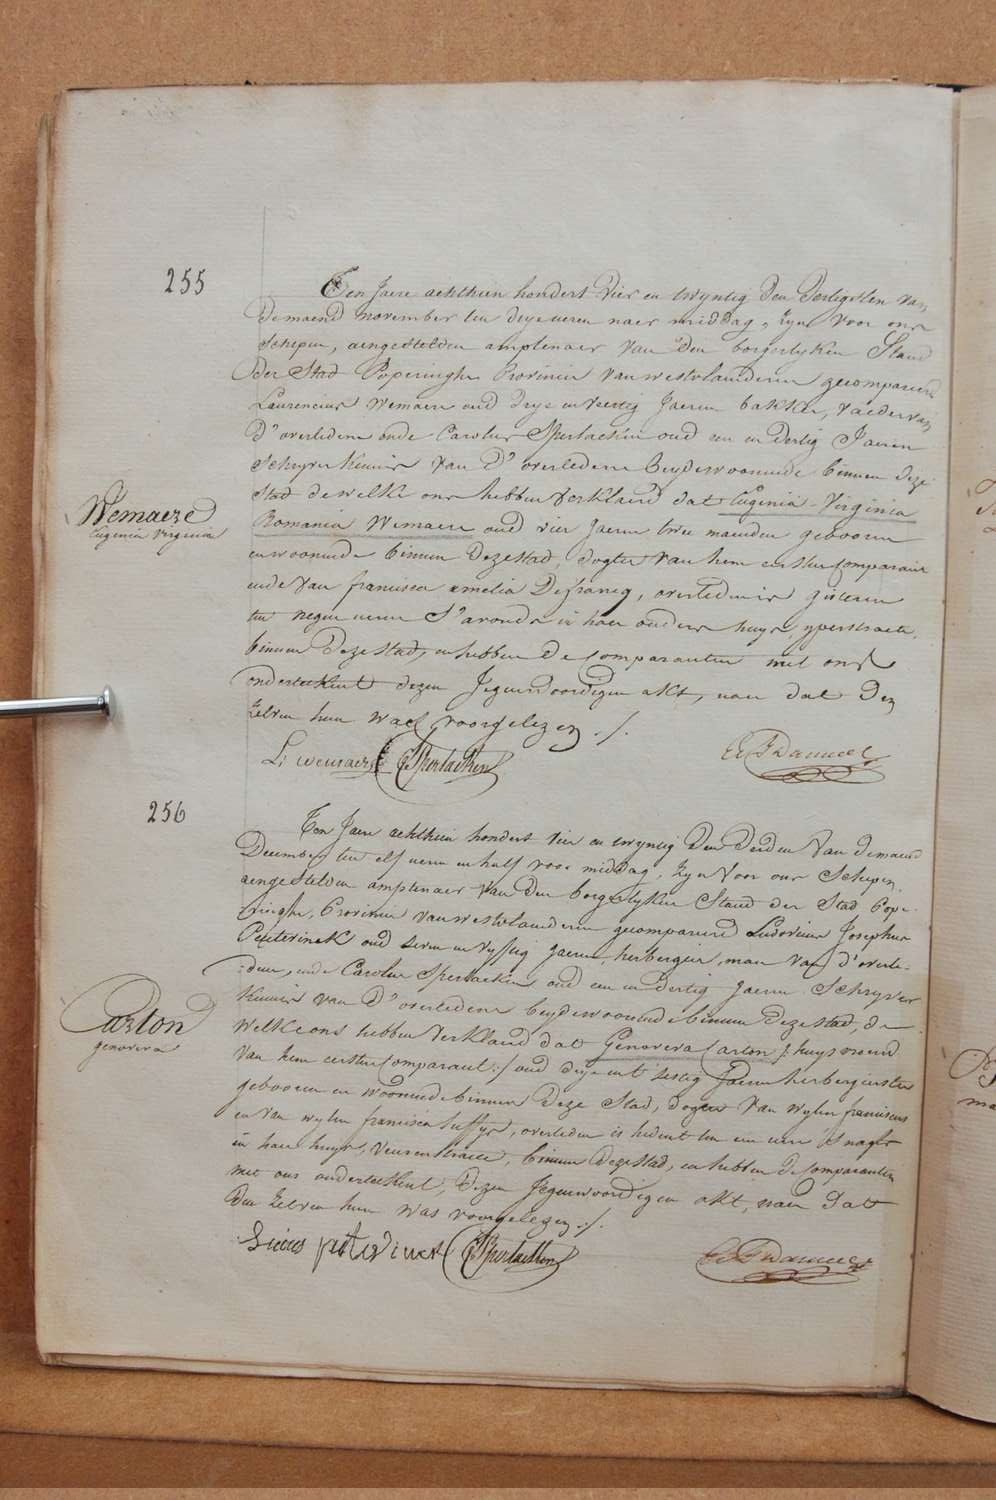 255
Ten Jaere achthien hondert vier en twyntig den dertigsten van
de maend november ten drye ueren naer middag, zyn voor ons
schepen, aengestelden amptenaer van den borgerlyken Stand
der Stad Poperinghe Provincie van westvlaenderen gecompareerd
Laurencius Wemaere oud drye en veertig Jaeren bakker, vaeder van
d'overledene ende Carolus Sperlaeken oud een en dertig Jaeren
Schryver kennis van d'overledene beyde woonende binnen deze
Stad de welke ons hebben verklaerd dat Eugenia Virginia
Romania Wemaere oud vier Jaeren twee maenden gebooren
en woonende binnen deze stad, dogter van hem eersten Comparant
ende van francisca amelia Defrancq, overleden is gisteren
ten negen ueren S'avonds in haer ouders huys, yperstraete,
binnen deze stad, en hebben de comparanten met ons
onderteekent dezen Jegenwoordigen akt, naer dat den
zelven hun was voorgelezen ./.
Wemaere
Eugenia Virginia
L: wemaere C Sperlaeken
256
Ten Jaere achthien hondert vier en twyntig den derden van de maend
December ten elf uren en half voor middag, zyn voor ons Schepen,
aengestelden amptenaer van den borgerlyken Stand der Stad Pope-
ringhe, Provincie van westvlaenderen gecompareerd Ludovicus Josephus
Peuterinck oud seven en vyftig Jaeren, herbergier, man van d'overle-
dene, ende Carolus Sperlaeken oud een en dertig Jaeren Schryver
kennis van d'overledene beyde woonende binnen deze stad, de
welke ons hebben verklaerd dat Genoveva Carton /: huysvrouw
van hem eersten Comparant :/ oud drye en t'sestig Jaeren herbergierster
gebooren en woonende binnen deze Stad, dogter van wylen franciscus
en van wylen francisca, overleden is hedent ten een uere 's nagts
in haer huys, veurnestraete, binnen deze stad, en hebben de Comparanten
met ons onderteekent, dezen Jegenwoordigen akt, naer dat
den zelven hun was voorgelezen ./.
Carton
genoveva
C Sperlaeken